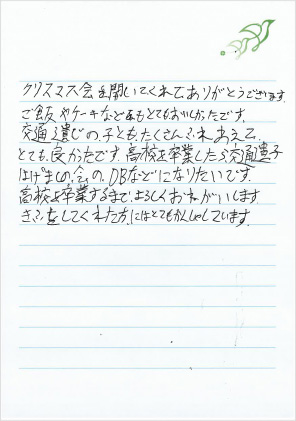 クリスマス会を開いてくれてありがとうございます。
ご飯やケーキなどもとてもおいしかったです。
交通遺じの、子ども、たくさん、あえて
とても、良かったです。高校を卒業したら交通遺子
はげましの、会の、OBなどになりたいです。
高校を卒業するまで、よろしくおねがいします
き?をしてくれた方にはとてもかんしゃしています。